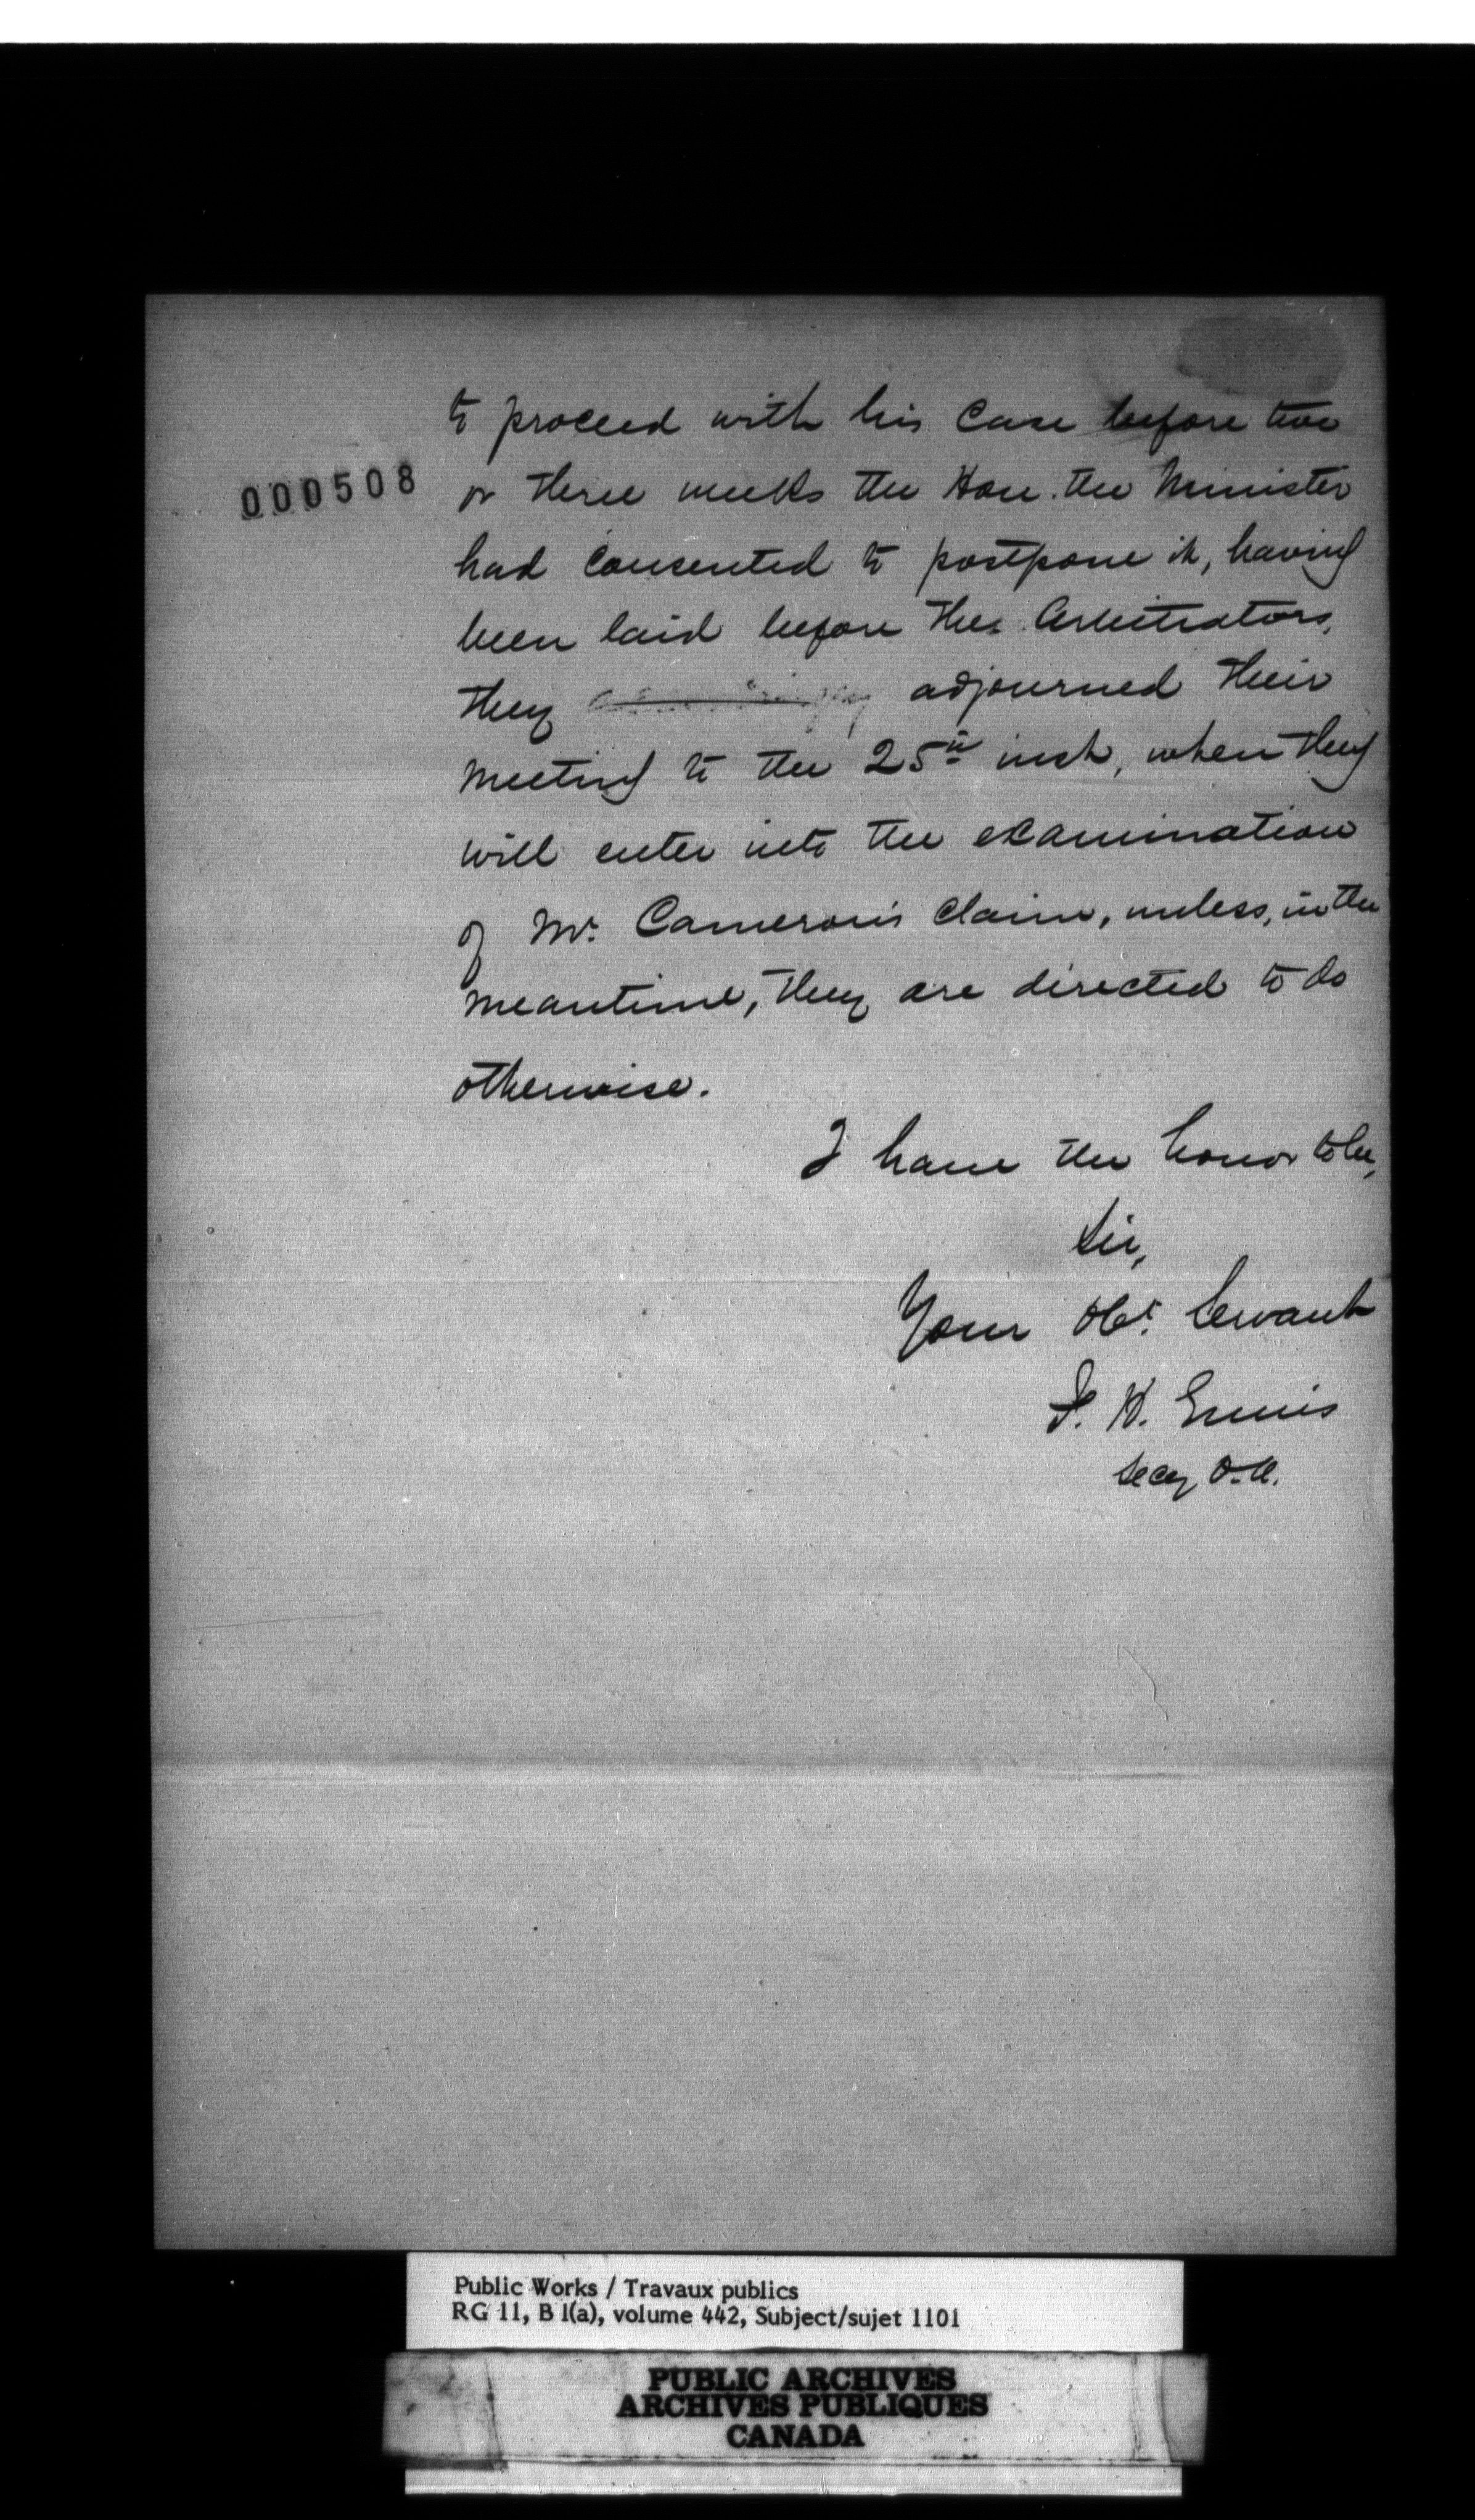 to proceed with his case before two
000508
or three weeks the Hon. the Minister
had consented to postpone it, having
been laid before the Arbitrators,
they adjourned their
meeting to the 25th inst, when they
will enter into the examination
of Mr. Cameron's claim, unless, in the
meantime, they are directed to do
otherwise.
I have the honor to be,
Sir,
Your Obt. Servant
F. H. Ennis
Secy O.A.
Public Works / Travaux publics
RG 11, B 1(a), volume 442, Subject/sujet 1101
PUBLIC ARCHIVES
ARCHIVES PUBLIQUES
CANADA